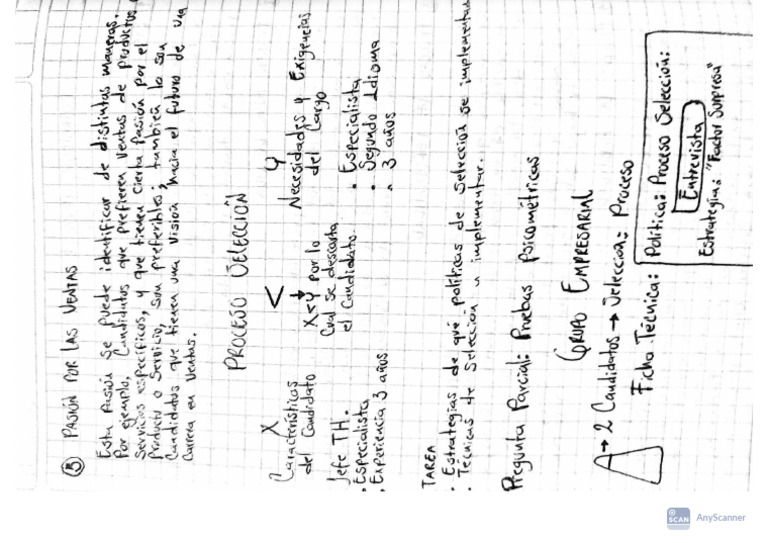 ③ PASIÓN POR LAS VENTAS
Esta Pasión se puede identificar de distintas maneras.
Por ejemplo, Candidatos que prefieren Ventas de productos
Servicios específicos, y que tienen cierta Pasión por el
Producto o Servicio, son preferibles; también lo son
Candidatos que tienen una Visión hacia el futuro de una
Carrera en Ventas.
PROCESO SELECCIÓN
X < Y
Características del Candidato
X<Y por lo Cual se descarta el Candidato.
Necesidades y Exigencias del Cargo
Jefe TH.
• Especialista
• Experiencia 3 años
• Especialista
• Segundo Idioma
• 3 años
TAREA
• Estrategias de qué políticas de selección se implementan
• Tecnicas de Selección a implementar.
Pregunta Parcial: Pruebas Psicométricas
GRUPO EMPRESARIAL
→ 2 Candidatos → Selección: Proceso
Ficha Técnica: Política: Proceso Selección:
Entrevista
Estrategia: "Factor Sorpresa"
SCAN AnyScanner